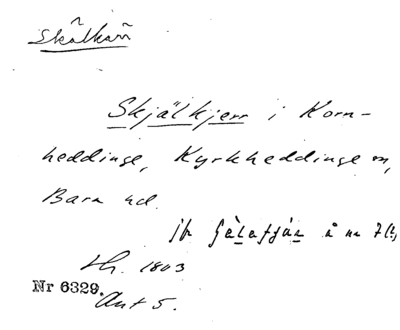 Skälkärr
Skjälkjerr i Korn-
heddinge, Kyrkheddinge sn,
Bara hd.
jfr
Lh. 1803
Nr 6329.
Akt 5.